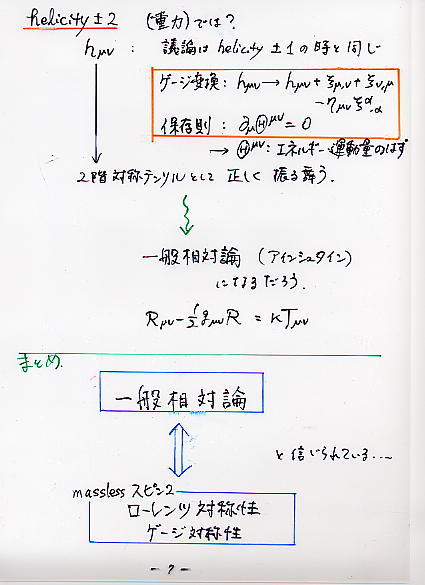 helicity ±2 (重力)では?
hμν : 議論は helicity ±1 の時と同じ
ゲージ変換: hμν → hμν + ξμ,ν + ξν,μ
− ημν ξ^α,α
保存則 : ∂μ Θ^μν = 0
→ Θ^μν: エネルギー運動量のはず
2階対称テンソルとして 正しく 振る舞う.
一般相対論 (アインシュタイン)
になるだろう.
Rμν − 1/2 gμν R = κTμν
まとめ.
一般相対論
と信じられている....
massless スピン2
ローレンツ対称性
ゲージ対称性
- 7 -